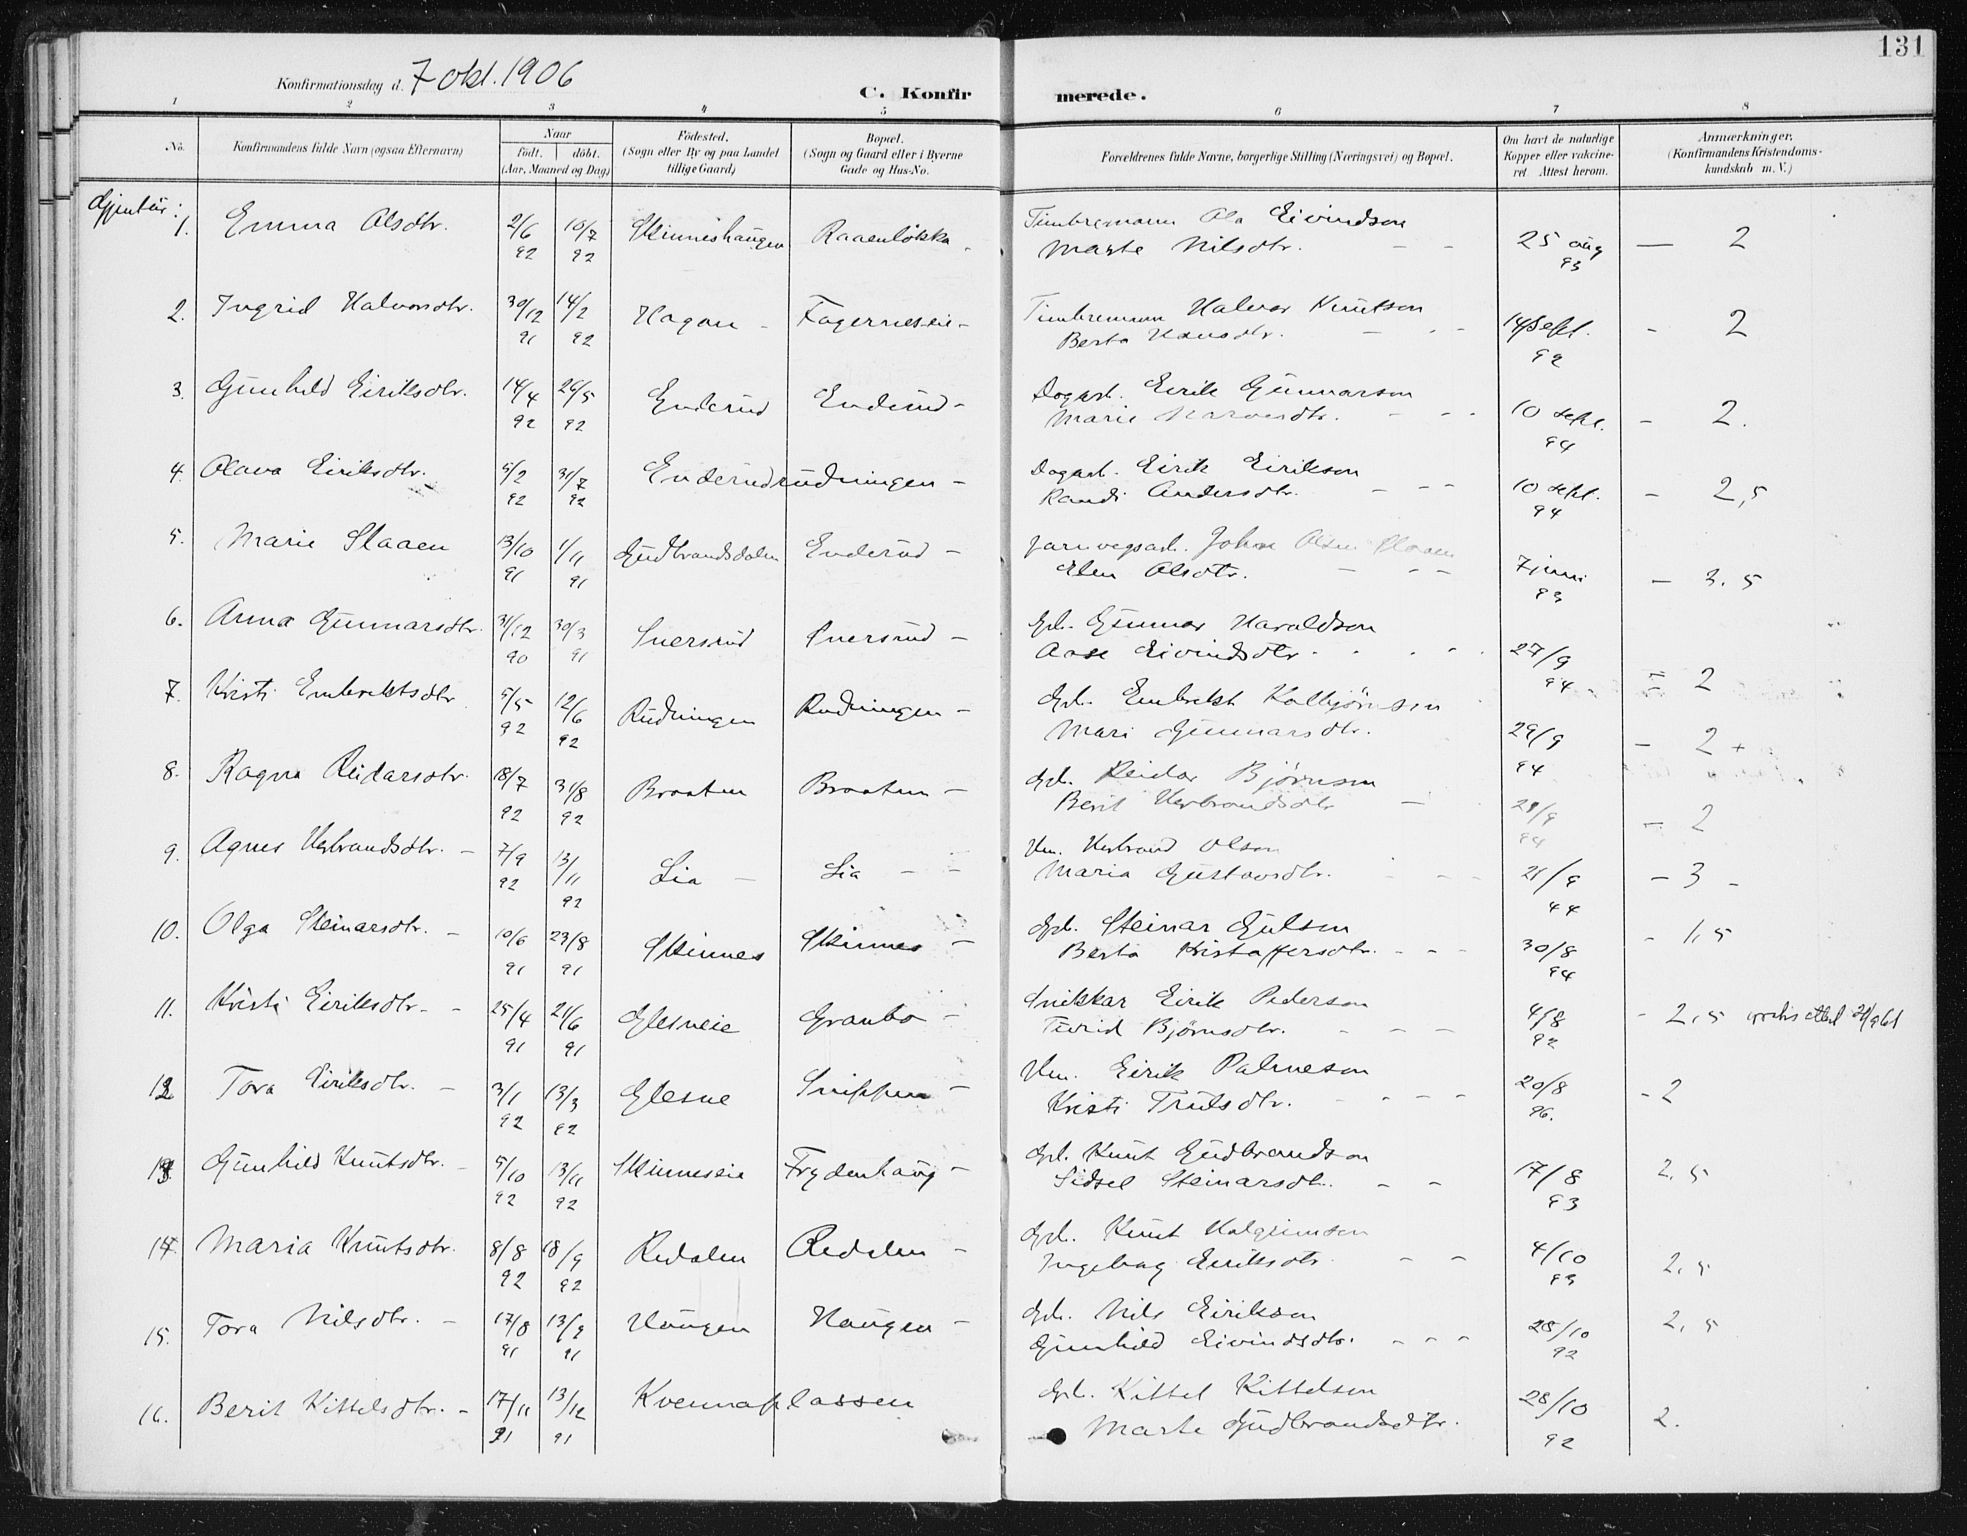 131
Konfirmationsdag d. 7 okt. 1906
C. Konfirmerede.
1 2 3 4 5 6 7 8
No. Konfirmandens fulde Navn (ogsaa Efternavn) Naar födt. döbt. (Aar, Maaned og Dag) Födested. (Sogn eller By og paa Landet tillige Gaard) Bopæl. (Sogn og Gaard eller i Byerne Gade og Hus-No. Forældrenes fulde Navne, borgerlige Stilling (Næringsvei) og Bopæl. Om havt de naturlige Kopper eller vakcineret Attest herom. Anmærkninger. (Konfirmandens Kristendomskundskab m. V.)
Gjentur:
1. Emma Olsdtr. 2/6 92 10/7 92 Skinneshaugen Raaenløkka Timbremann Ola Eivindson
Marte Nilsdtr. - - 25 aug 93 — 2
2. Ingrid Halvorsdtr. 30/12 91 14/2 92 Hagan - Fagerneseie - Timbremann Halvor Knutson
Berta Hansdtr. - - - 14 Sept. 92 - 2
3. Gunhild Eiriksdtr. 14/4 92 26/5 92 Enderud Enderud - Dagarb. Eirik Gunnarson
Marie - - - 10 sept. 94 - 2.
4. Olava Eiriksdtr. 5/2 92 31/7 92 Enderudrudningen - Dagarb. Eirik Eirikson
Randi Andersdtr. - - - 10 sept. 94 - 2,5
5. Marie Slaaen 13/10 91 1/11 91 Gudbrandsdalen Enderud - jarnvegsarb. Johan Olsen Slaaen
Elen Olsdtr. - - - 7 juni 93 - 3,5
6. Anna Gunnarsdtr. 31/12 90 30/3 91 Sversrud Sversrud - Gbr. Gunnar Haraldson
Aase Eivindsdtr. 27/9 94 - 2
7. Kristi Embriktsdtr 5/5 92 12/6 92 Rudningen Rudningen - Gbr. Embrikt Kolbjørnsen
Mari Gunnarsdtr. 29/9 94 - 2 +
8. Ragna Reidarsdtr. 18/7 92 31/8 92 Braaten Braaten - Gbr. Reidar Bjørnson
Berit Herbrandsdtr - 29/9 94 - 2
9. Agnes Herbrandsdtr. - 7/9 92 13/11 92 Lia - Lia - - Hm. Herbrand Olson
Maria Gustavsdtr. - - - 21/9 44 - 3 -
10. Olga Steinarsdtr. - 10/6 91 23/8 91 Skinnes Skinnes - Gbr. Steinar Gulson
Berta Kristaffersdtr. - - - 30/8 94 - 1,5
11. Kristi Eiriksdtr. - 25/4 91 21/6 91 Glesneie Granbo - Snikkar Eirik Pederson
Turid Bjørnsdtr. - - - 4/8 92 - 2,5
12 Tora Eiriksdtr. - 3/1 92 13/3 92 Glesne Snippen - Hm. Eirik Palmeson
Kristi Trulsdtr. - - - - 20/8 96. - 2
13 Gunhild Knutsdtr. - 5/10 92 13/11 92 Skinneseie Frydenhaug - Gbr. Knut Gudbrandson
Sidsel Steinarsdtr. - - 17/8 93 2,5
14. Maria Knutsdtr. 8/8 92 18/9 92 Redalen Redalen - Gbr. Knut Halgrimson
Ingebog Eiriksdtr - - 4/10 93 2,5
15. Tora Nilsdtr. - 17/8 91 13/9 91 Haugen Haugen - Gbr. Nils Eirikson
Gunhild Eivindsdtr. - - - 28/10 92 2,5
16. Berit Kittelsdtr. - 17/11 91 13/12 91 Kvennaplassen Gbr. Kittel Kittelson
Marte Gudbrandsdtr. 28/10 92 2.